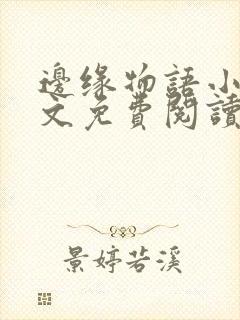 邊緣物語小
文免費閱讀
景婷若溪